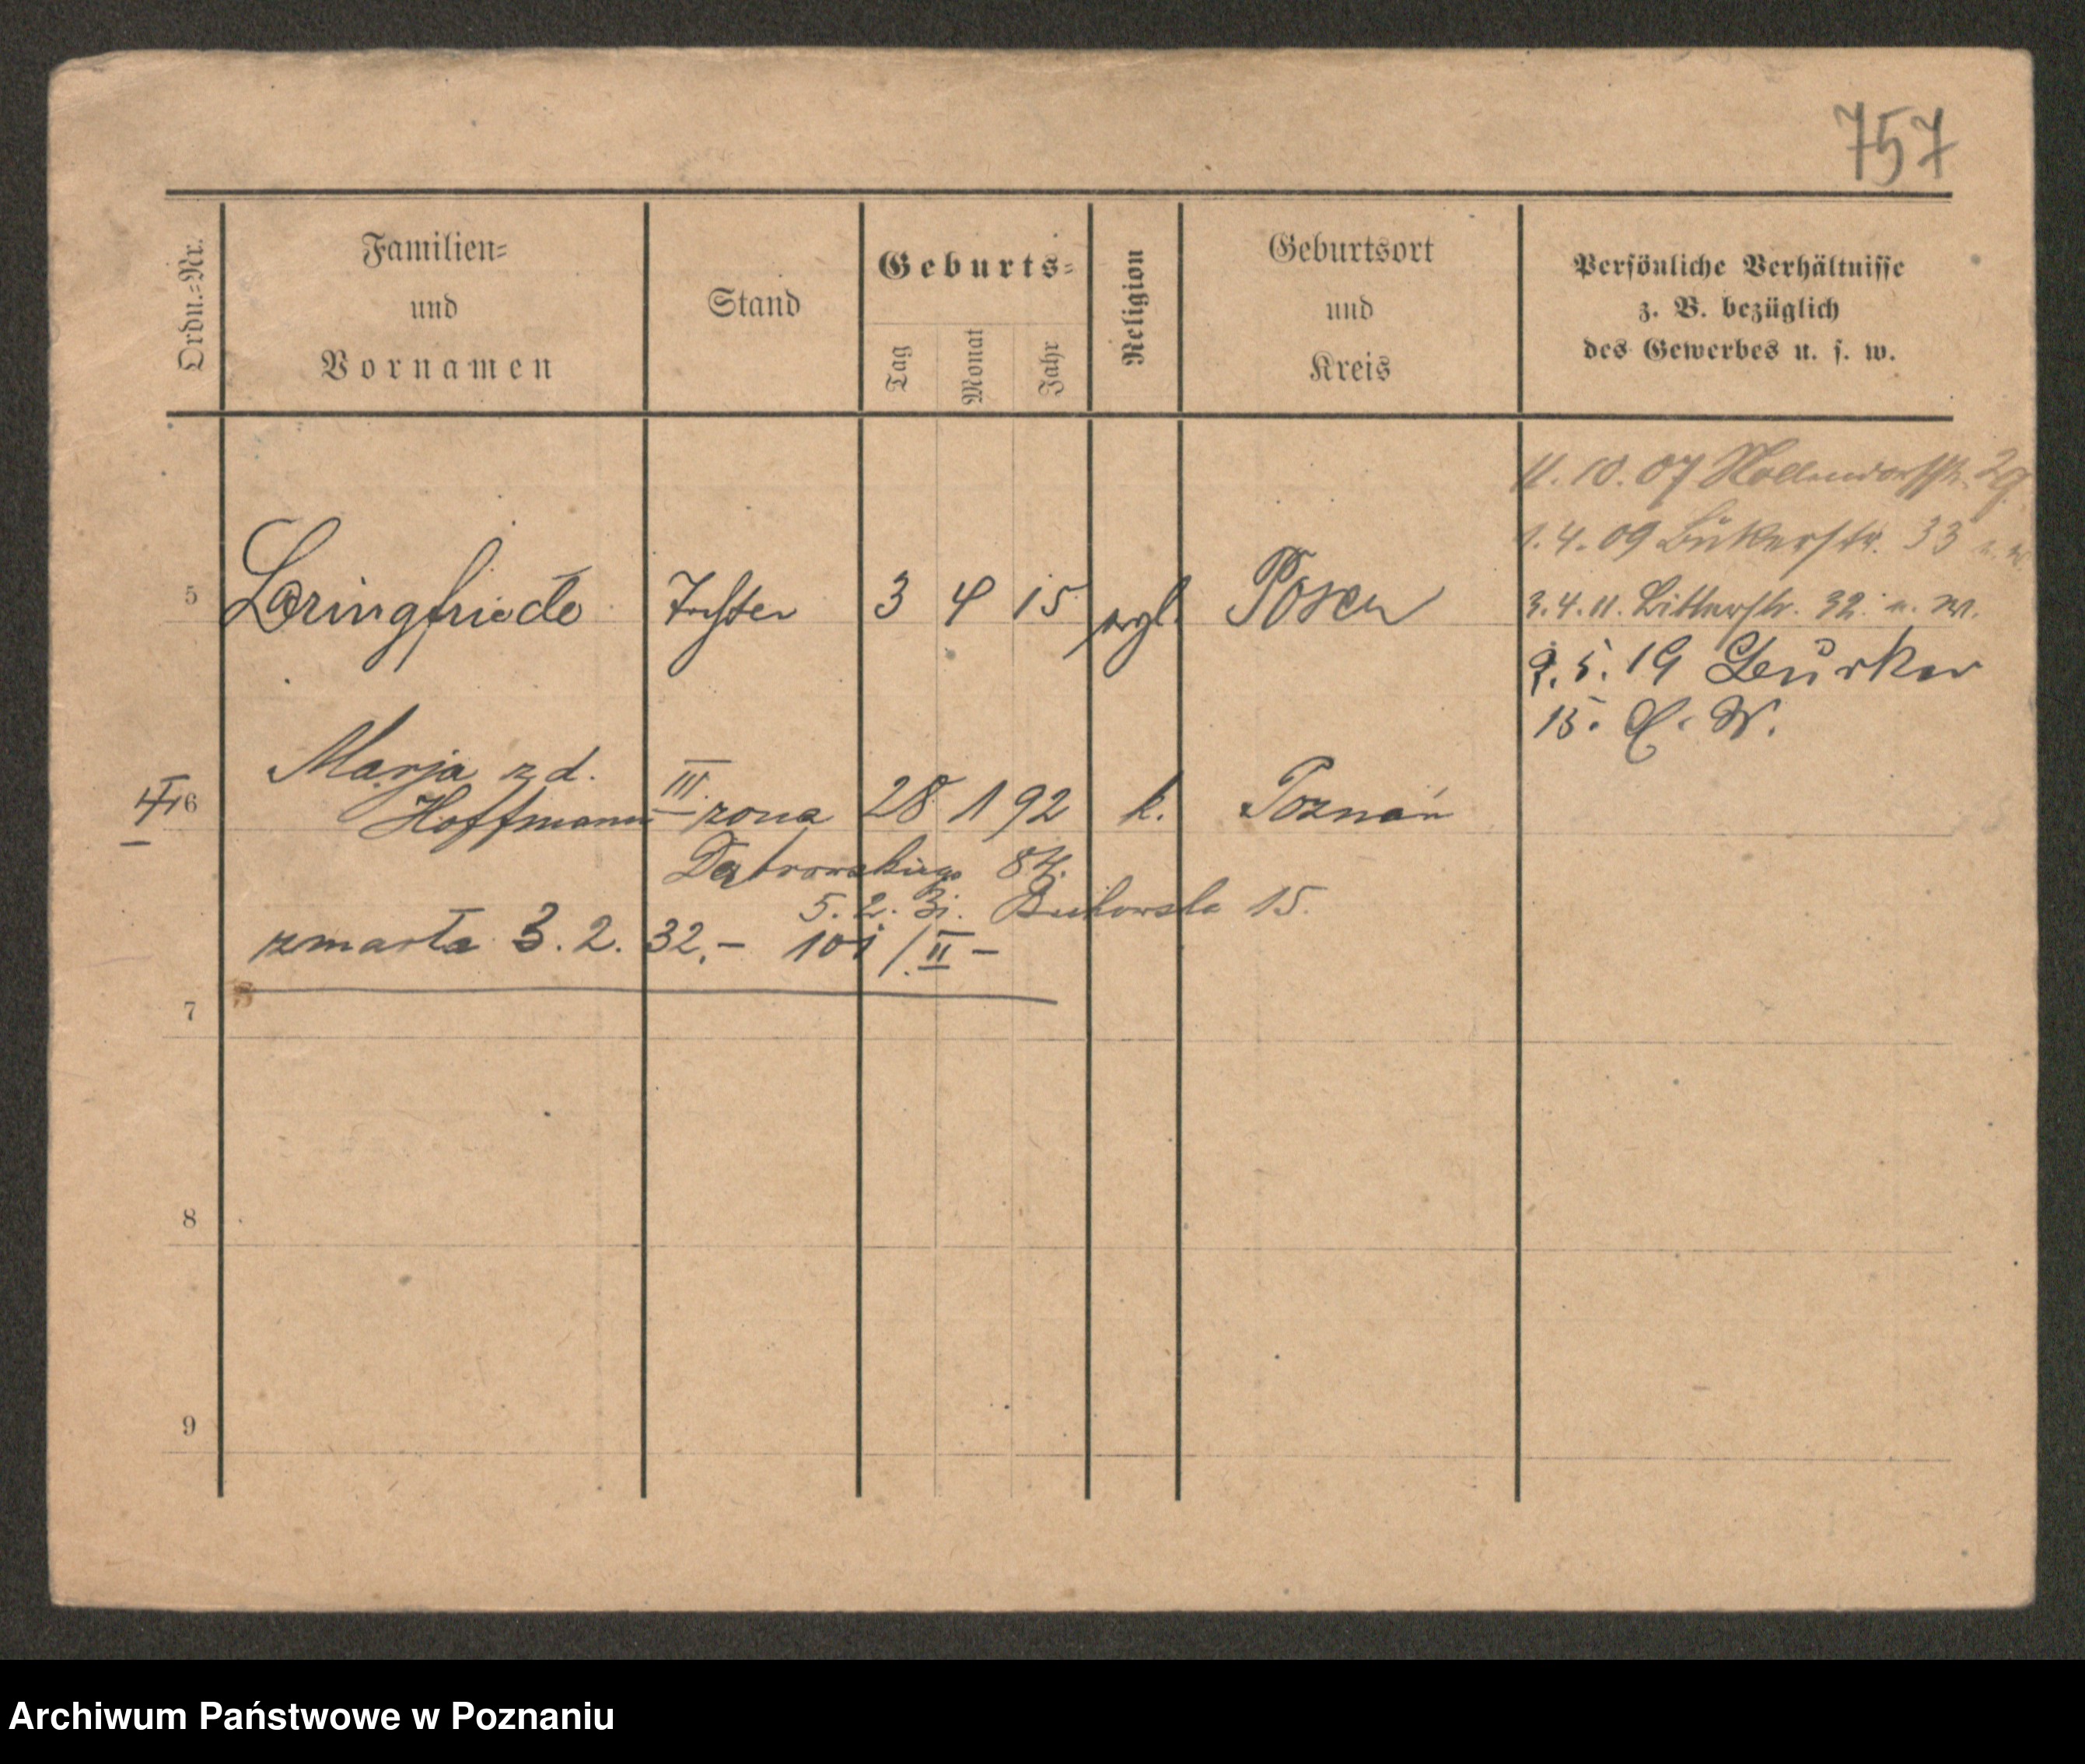 757
Ordn.=Nr.
Familien=
und
Vornamen
Stand
Geburts=
Tag
Monat
Jahr
Religion
Geburtsort
und
Kreis
Persönliche Verhältnisse
z. B. bezüglich
des Gewerbes u. s. w.
11. 10. 07 Nollendorfstr. 29
1. 4. 09 33
5 Tochter 3 4 15 evgl. Posen
3. 4. 11. Bitterstr. 32
9. 5. 19
15.
Marja z d.
6 Hoffmann III. żona 28 1 92 k. Poznań
Dąbrowskiego 84.
5. 2. 31. Bukowska 15.
zmarła 3. 2. 32.– 101 /II –
7
8
9
Archiwum Państwowe w Poznaniu